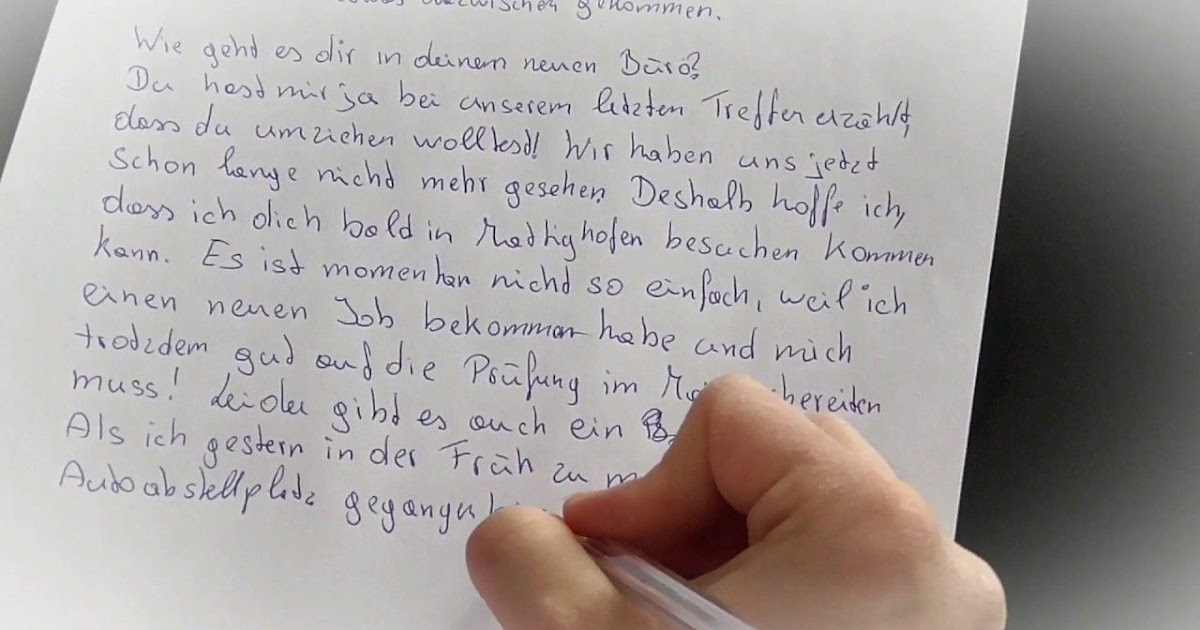 dazwischen gekommen.
Wie geht es dir in deinem neuen Büro?
Du hast mir ja bei unserem letzten Treffen erzählt,
dass du umziehen wolltest! Wir haben uns jetzt
schon lange nicht mehr gesehen. Deshalb hoffe ich,
dass ich dich bald in Mattighofen besuchen kommen
kann. Es ist momentan nicht so einfach, weil ich
einen neuen Job bekommen habe und mich
trotzdem gut auf die Prüfung im
muss! Leider gibt es auch ein
Als ich gestern in der Früh zu
Autoabstellplatz gegangen